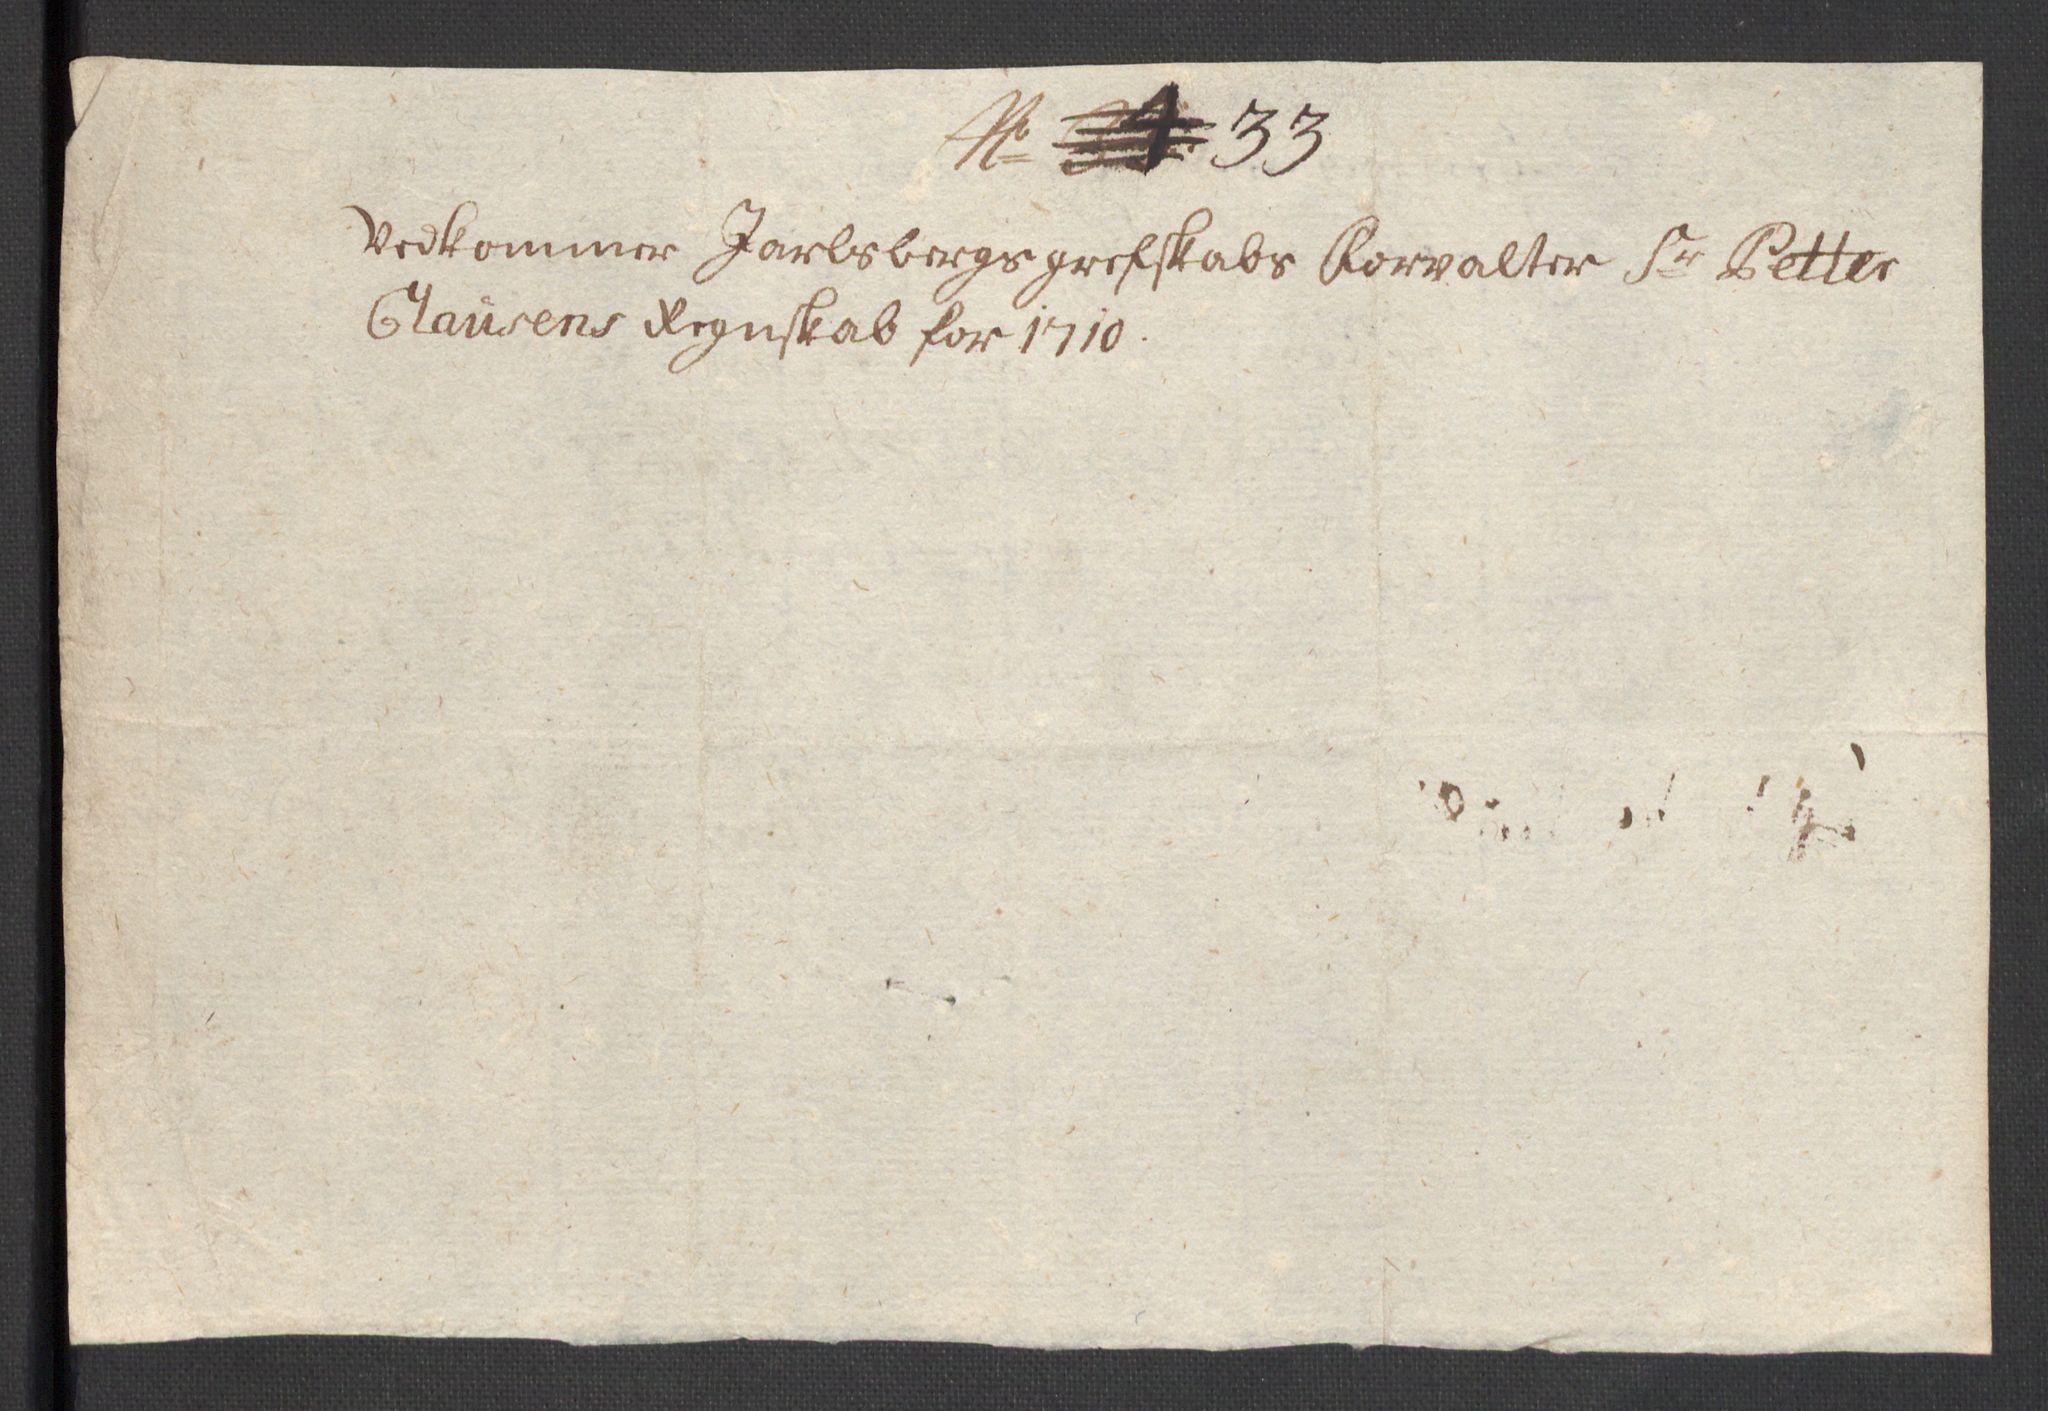 No 33
Vedkommer Jarlsbergs grefskabs Forvalter Sr Petter
Clausens Regnskab for 1710.